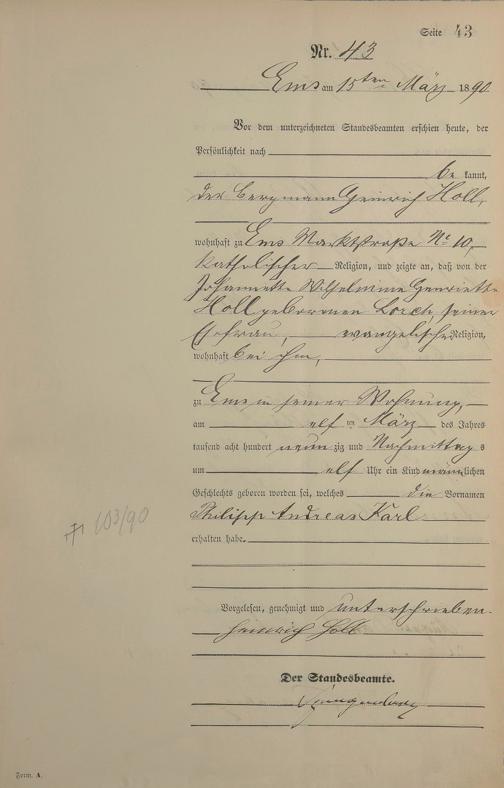 Seite 43
Nr. 43
Ems am 15ten März 1890
Vor dem unterzeichneten Standesbeamten erschien heute, der
Persönlichkeit nach
be kannt,
der Bergmann Heinrich Holl,
wohnhaft zu Ems Marktstraße No 10,
katholischer Religion, und zeigte an, daß von der
Johannette Wilhelmine Henriette
Holl geborenen Lorch, seiner
Ehefrau, evangelischer Religion,
wohnhaft bei ihm,
zu Ems in seiner Wohnung,
am elf ten März des Jahres
tausend acht hundert neun zig und Nachmittag s
um elf Uhr ein Kind männlichen
Geschlechts geboren worden sei, welches die Vornamen
Philipp Andreas Karl
erhalten habe.
103/90
Vorgelesen, genehmigt und unterschrieben.
Heinrich Holl
Der Standesbeamte.
Form. A.